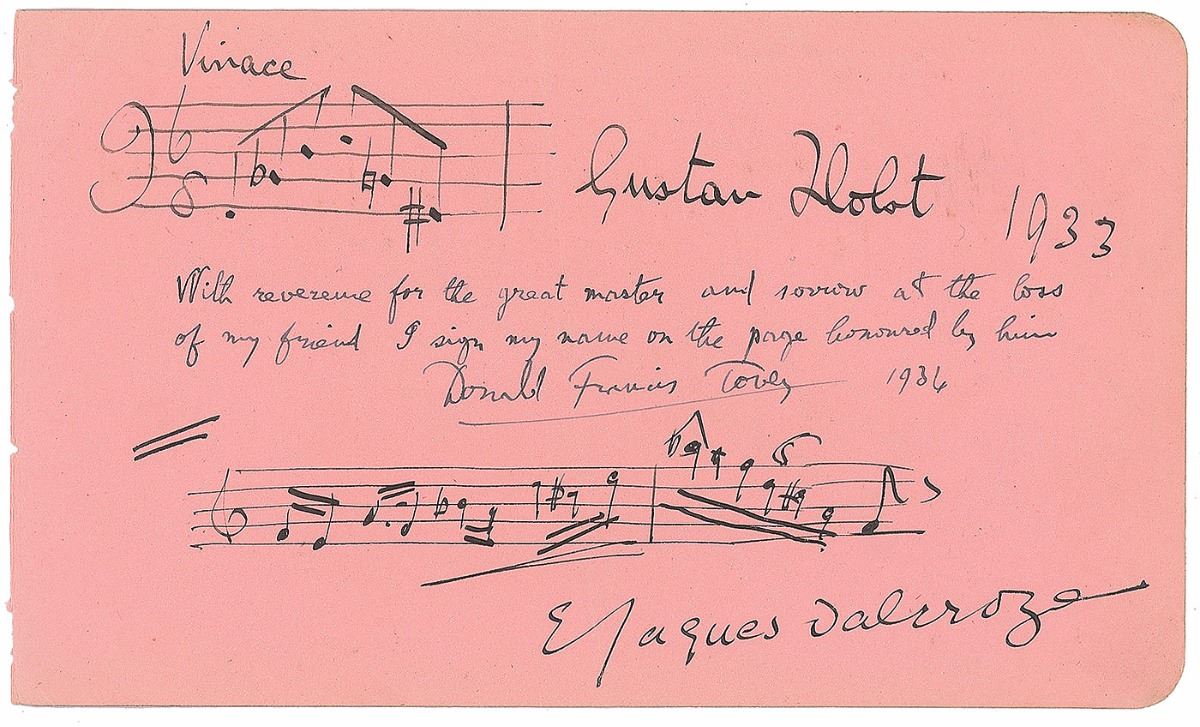 Vivace
6
8
Gustav Holst
1933
With reverence for the great master and sorrow at the loss
of my friend I sign my name on the page honoured by him
Donald Francis Tovey 1934
E Jaques Dalcroze